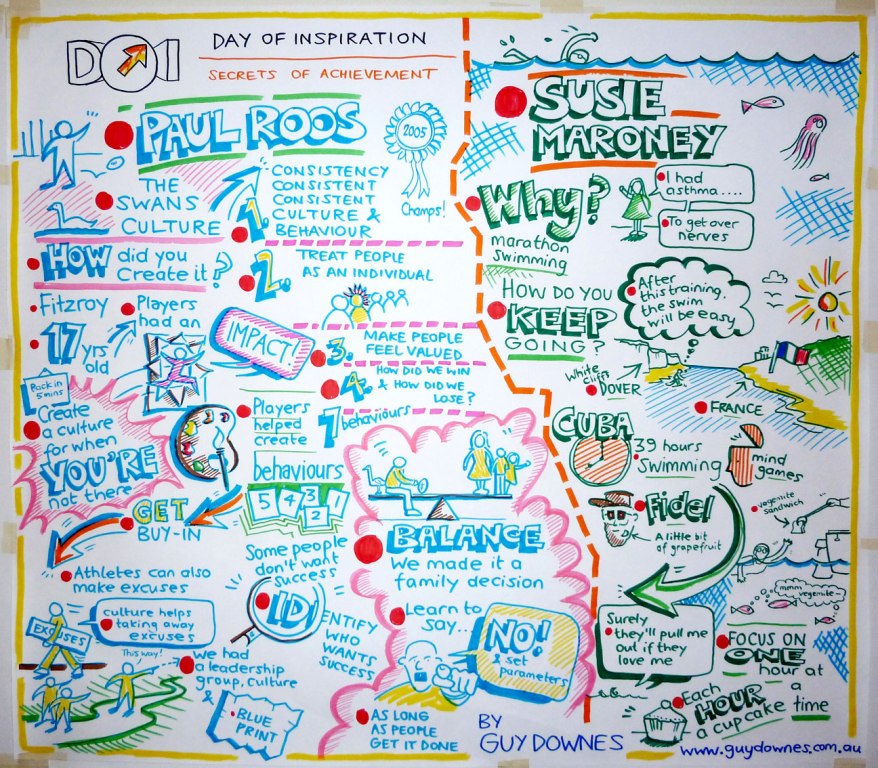 DOI
DAY OF INSPIRATION
SECRETS OF ACHIEVEMENT
PAUL ROOS
2005
Champs!
THE
SWANS
CULTURE
1.
CONSISTENCY
CONSISTENT
CONSISTENT
CULTURE &
BEHAVIOUR
HOW did you
Create it?
2.
TREAT PEOPLE
AS AN INDIVIDUAL
Fitzroy
17 yrs
old
Players
had an
IMPACT!
3. MAKE PEOPLE
FEEL VALUED
4. HOW DID WE WIN
& HOW DID WE
LOSE?
Back in
5 mins
Create
a culture
for when
YOU'RE
not there
Players
helped
create
7 behaviours
behaviours
5 4 3 2 1
GET
BUY-IN
Athletes can also
make excuses
EXCUSES!
culture helps
taking away
excuses
This way!
We had
a leadership
group, culture
&
BLUE
PRINT
Some people
don't want
success
IDENTIFY
WHO
WANTS
SUCCESS
BALANCE
We made it a
family decision
Learn to
say...
NO!
& set
parameters
AS LONG
AS PEOPLE
GET IT DONE
SUSIE
MARONEY
Why?
marathon
Swimming
I had
asthma....
To get over
nerves
HOW DO YOU
KEEP
GOING?
After
this training,
the swim
will be easy
White
Cliffs
DOVER
FRANCE
CUBA
39 hours
Swimming
mind
games
Fidel
A little bit
of grapefruit
vegemite
sandwich
mmm
vegemite~
Surely
they'll pull me
out if they
love me
FOCUS ON
ONE
hour at
a
time
Each
HOUR
a cupcake
BY
GUY DOWNES
www.guydownes.com.au